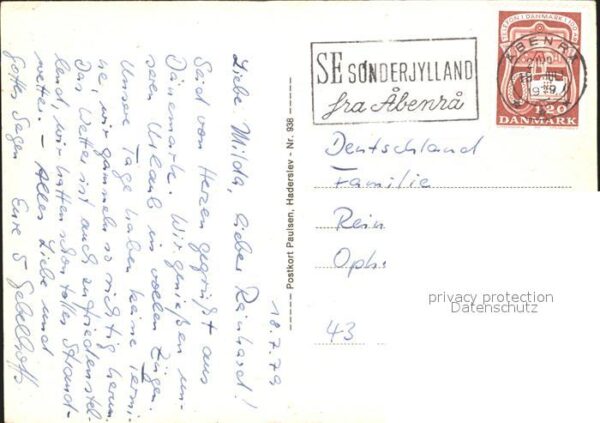 18.7.79
Liebe Milda, lieber Reinhardt!
Seid von Herzen gegrüßt aus
Dänemark. Wir genießen un-
seren Urlaub in vollen Zügen.
Unsere Tage haben keine Termi-
ne, wir gammeln so richtig herum.
Das Wetter ist auch zufriedenstel-
lend, wir hatten schon tolles Strand-
wetter. – Alles Liebe und
Gottes Segen Eure 5
Postkort Paulsen, Haderslev - Nr. 938
SE SØNDERJYLLAND
fra Åbenrå
ÅBENRÅ
1979
TELEFON I DANMARK 100 ÅR
120
DANMARK
Deutschland
Familie
Rein
Oph
43
privacy protection
Datenschutz